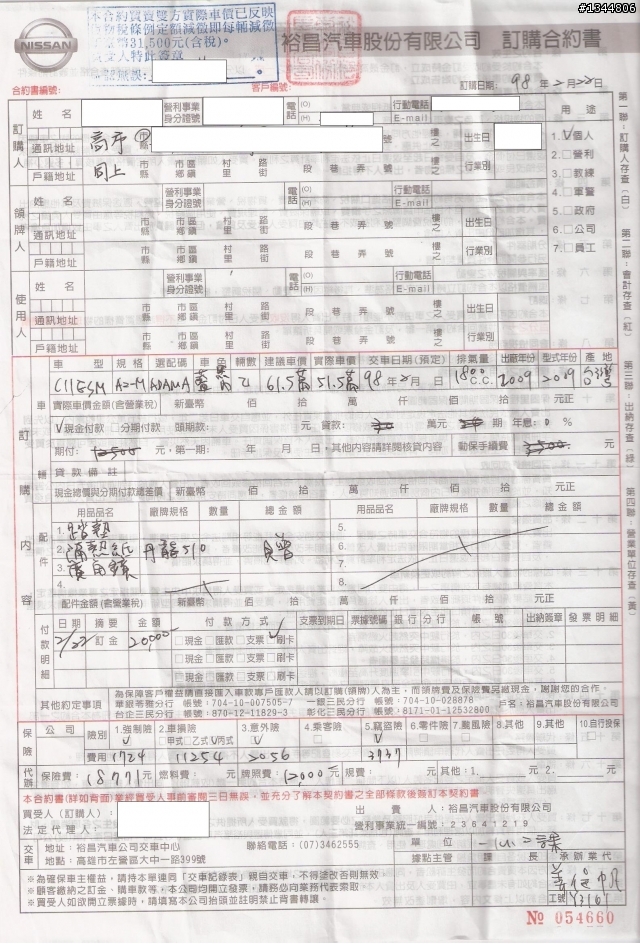 #1344806
本合約買賣雙方實際車價已反映
貨物稅條例定額減徵即每輛減徵
31,500元(含稅)。
買受人特此簽章
NISSAN
裕昌汽車股份有限公司 訂購合約書
合約書編號: 客戶編號: 訂購日期: 98 年 2 月 22 日
訂購人
姓 名 營利事業身分證號 電話 (O) (H) 行動電話 E-mail
通訊地址 高市 市縣 市區鄉鎮 村里 路街 段 巷 弄 號 樓之 出生日
戶籍地址 同上 市縣 市區鄉鎮 村里 路街 段 巷 弄 號 樓之 行業別
用途
1.V個人
2.□營利
3.□教練
4.□軍警
5.□政府
6.□公司
7.□員工
領牌人
姓 名 營利事業身分證號 電話 (O) (H) 行動電話 E-mail
通訊地址 市縣 市區鄉鎮 村里 路街 段 巷 弄 號 樓之 出生日
戶籍地址 市縣 市區鄉鎮 村里 路街 段 巷 弄 號 樓之 行業別
使用人
姓 名 營利事業身分證號 電話 (O) (H) 行動電話 E-mail
通訊地址 市縣 市區鄉鎮 村里 路街 段 巷 弄 號 樓之 出生日
戶籍地址 市縣 市區鄉鎮 村里 路街 段 巷 弄 號 樓之 行業別
第一聯:訂購人存查(白) 第二聯:會計存查(紅) 第三聯:出納存查(綠) 第四聯:營業單位存查(黃)
訂購內容
車輛
車型 規格 選配碼 車色 輛數 建議車價 實際車價 交車日期(預定) 排氣量 出廠年份 型式年份 產地
61.5萬 51.5萬 98年2月 日 1800 C.C. 2009 台灣
實際車價金額(含營業稅) 新臺幣 佰 拾 萬 仟 佰 拾 元正
V現金付款 □分期付款 頭期款: 元 貸款: 萬元 期 年息: 0 %
期付: 元,第一期: 年 月 日,其他內容請詳閱核貸內容 動保手續費 3500 元
貸款備註
現金總價與分期付款總差價 新臺幣 佰 拾 萬 仟 佰 拾 元正
配件
用品品名 廠牌規格 數量 總金額 用品品名 廠牌規格 數量 總金額
1. 踏墊 5.
2. 隔熱紙 510 6.
3. 7.
4. 8.
配件金額(含營業稅) 新臺幣 佰 拾 萬 仟 佰 拾 元正
付款明細
日期 摘要 金額 付款方式 支票到期日 票據號碼 銀行 分行 帳號 出納簽章 發票明細
2/22 訂金 20,000 □現金□匯款□支票V刷卡
□現金□匯款□支票□刷卡
□現金□匯款□支票□刷卡
其他約定事項
為保障客戶權益請直接匯入車款專戶匯款人請以訂購(領牌)人為主,而領牌費及保險費另繳現金,謝謝您的合作。
華銀苓雅分行 帳號:704-10-007505-7 一銀三民分行 帳號:704-10-028878 戶名:裕昌汽車股份有限公司
台企三民分行 帳號:870-12-11829-3 彰化三民分行 帳號:8171-01-12532800
保險
公司 險別 1.強制險 2.車損險 □甲式□乙式V丙式 3.意外險 4.乘客險 5.竊盜險 6.零件險 7.颱風險 8.其他 9.其他 □10.自行投保
費用 1724 11254 2056 3737
代辦 保險費: 18771 元 燃料費: 元 牌照費: 12000 元 規費: 元 其他:1. 元 2. 元
本合約書(詳如背面)業經買受人事前審閱三日無誤,並充分了解本契約書之全部條款後簽訂本契約書
買受人(訂購人): 出賣人:裕昌汽車股份有限公司
法定代理人: 營利事業統一編號:23641219
交車 地址:裕昌汽車公司交車中心 聯絡電話:(07)3462555
地點:高雄市左營區大中一路399號
單位 課
據點主管 課長 承辦業代
※為確保車主權益,請持本單連同「交車記錄表」親自交車,不得塗改否則無效。
※顧客繳納之訂金、購車款等,本公司均開立發票,請務必向業務代表索取。
※買受人如欲開立票據時,請填寫本公司抬頭並註明禁止背書轉讓。
工號
No 054660